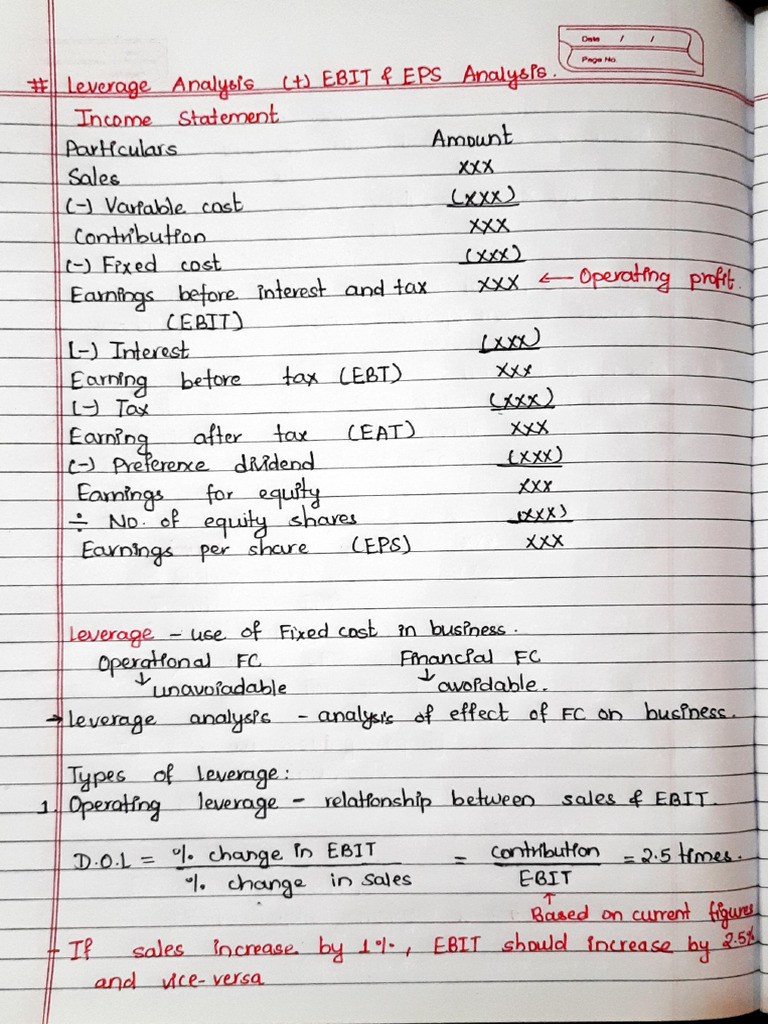 Date / /
Page No.
# Leverage Analysis (+) EBIT & EPS Analysis.
Income Statement
Particulars Amount
Sales xxx
(-) Variable cost (xxx)
Contribution xxx
(-) Fixed cost (xxx)
Earnings before interest and tax xxx ← Operating profit.
(EBIT)
(-) Interest (xxx)
Earning before tax (EBT) xxx
(-) Tax (xxx)
Earning after tax (EAT) xxx
(-) Preference dividend (xxx)
Earnings for equity xxx
÷ No. of equity shares (xxx)
Earnings per share (EPS) xxx
Leverage - use of Fixed cost in business.
Operational FC Financial FC
↓ unavoiadable ↓ avoidable.
→ leverage analysis - analysis of effect of FC on business.
Types of leverage:
1. Operating leverage - relationship between sales & EBIT.
D.O.L = % change in EBIT / % change in sales = contribution / EBIT = 2.5 times.
↑
Based on current figures
- If sales increase by 1%, EBIT should increase by 2.5%
and vice-versa